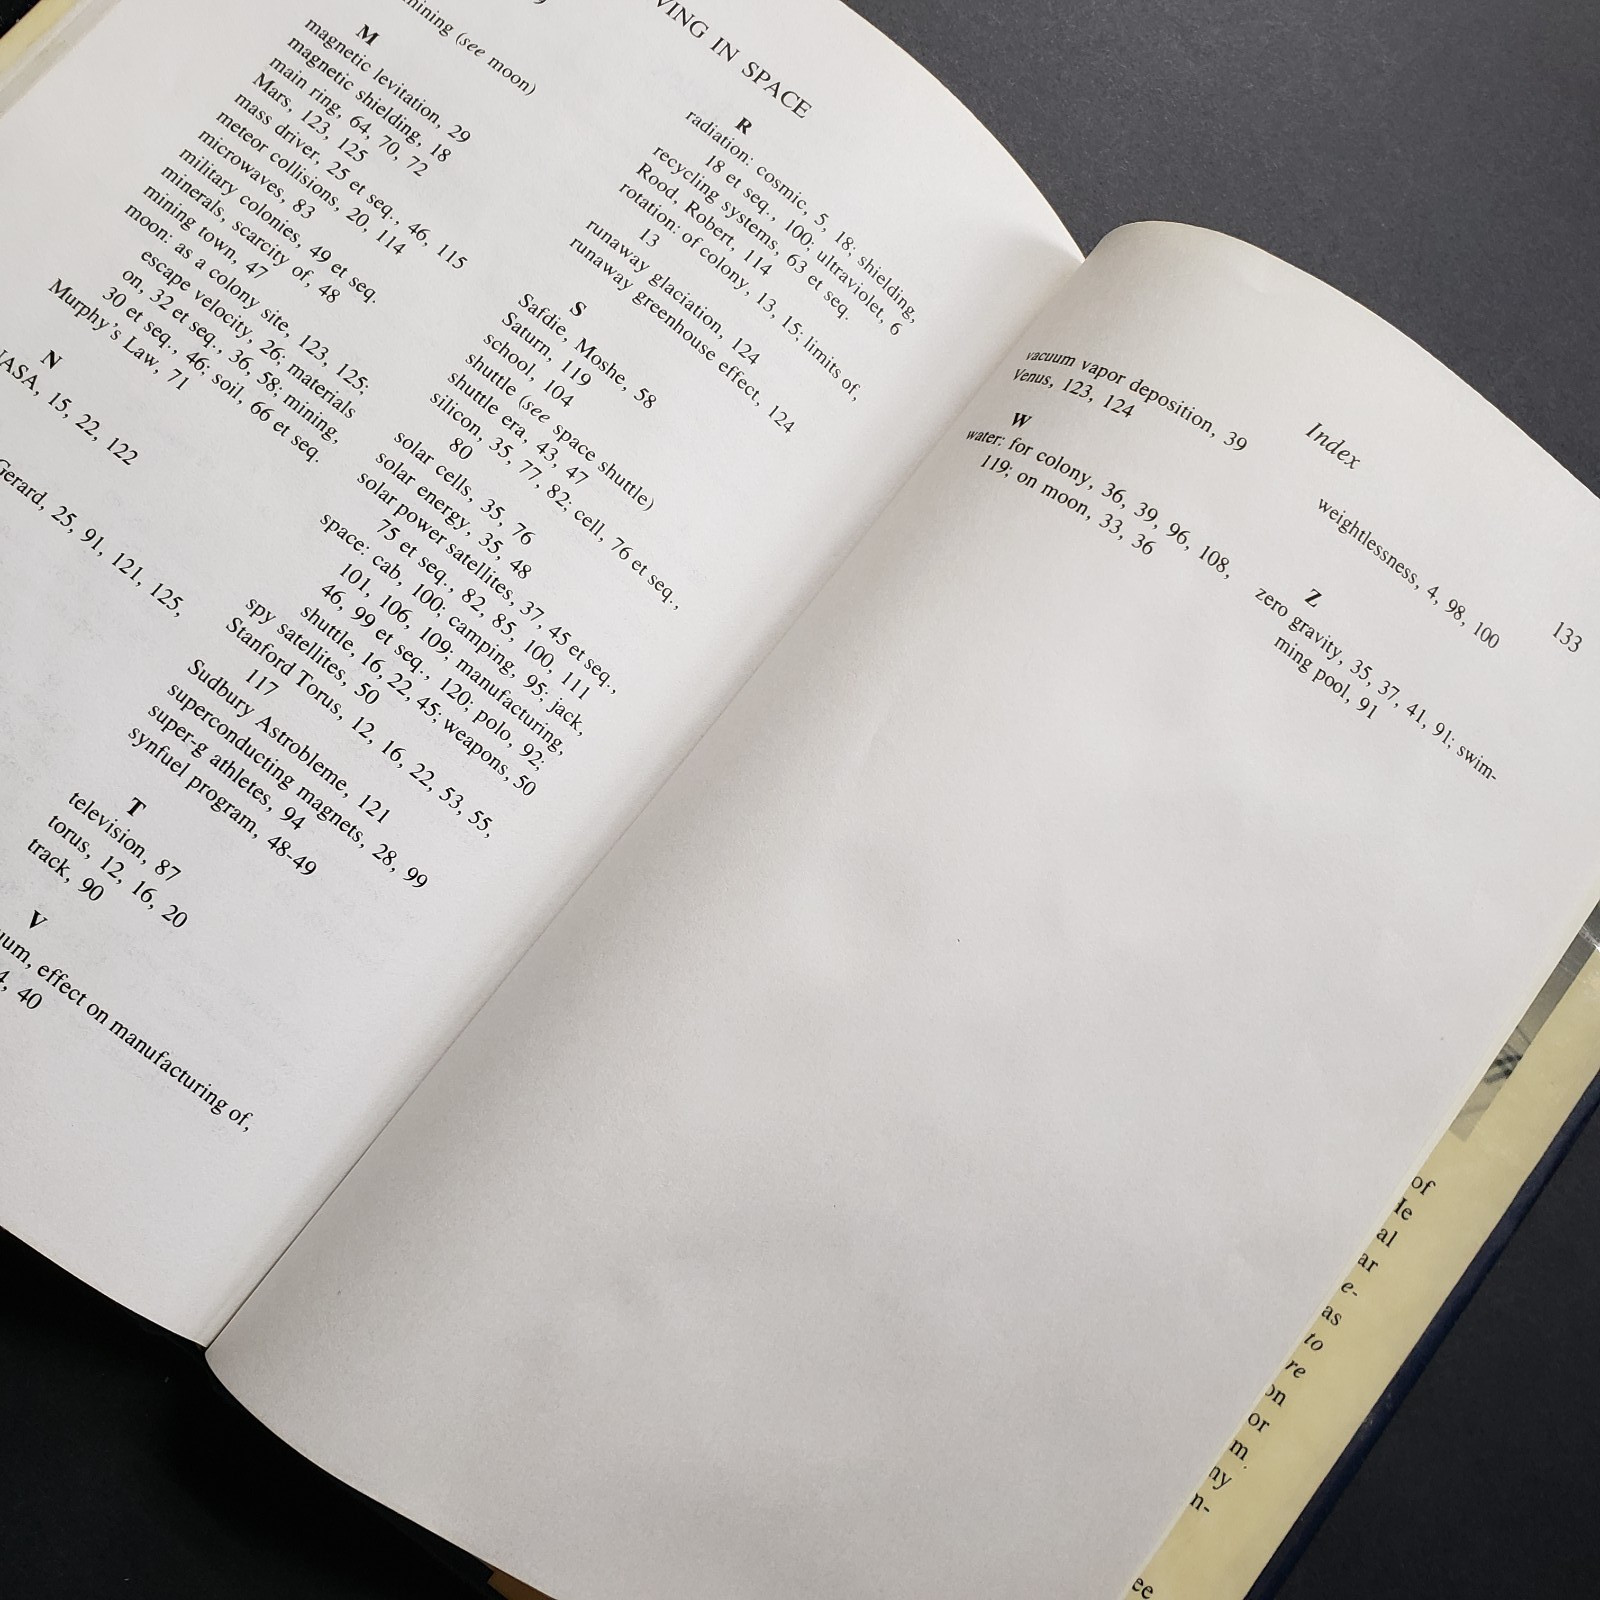 VING IN SPACE
mining (see moon)
M
magnetic levitation, 29
magnetic shielding, 18
main ring, 64, 70, 72
Mars, 123, 125
mass driver, 25 et seq., 46, 115
meteor collisions, 20, 114
microwaves, 83
military colonies, 49 et seq.
minerals, scarcity of, 48
mining town, 47
moon: as a colony site, 123, 125;
escape velocity, 26; materials
on, 32 et seq., 36, 58; mining,
30 et seq., 46; soil, 66 et seq.
Murphy's Law, 71
N
NASA, 15, 22, 122
Gerard, 25, 91, 121, 125,
R
radiation: cosmic, 5, 18; shielding,
18 et seq., 100; ultraviolet, 6
recycling systems, 63 et seq.
Rood, Robert, 114
rotation: of colony, 13, 15; limits of,
13
runaway glaciation, 124
runaway greenhouse effect, 124
S
Safdie, Moshe, 58
Saturn, 119
school, 104
shuttle (see space shuttle)
shuttle era, 43, 47
silicon, 35, 77, 82; cell, 76 et seq.,
80
solar cells, 35, 76
solar energy, 35, 48
solar power satellites, 37, 45 et seq.,
75 et seq., 82, 85, 100, 111
space: cab, 100; camping, 95; jack,
101, 106, 109; manufacturing,
46, 99 et seq., 120; polo, 92;
shuttle, 16, 22, 45; weapons, 50
spy satellites, 50
Stanford Torus, 12, 16, 22, 53, 55,
117
Sudbury Astrobleme, 121
superconducting magnets, 28, 99
super-g athletes, 94
synfuel program, 48-49
T
television, 87
torus, 12, 16, 20
track, 90
V
uum, effect on manufacturing of,
4, 40
Index
133
vacuum vapor deposition, 39
Venus, 123, 124
W
water: for colony, 36, 39, 96, 108,
119; on moon, 33, 36
weightlessness, 4, 98, 100
Z
zero gravity, 35, 37, 41, 91; swim-
ming pool, 91
of
le
al
ar
e-
as
to
re
on
or
m.
ny
n-
ee